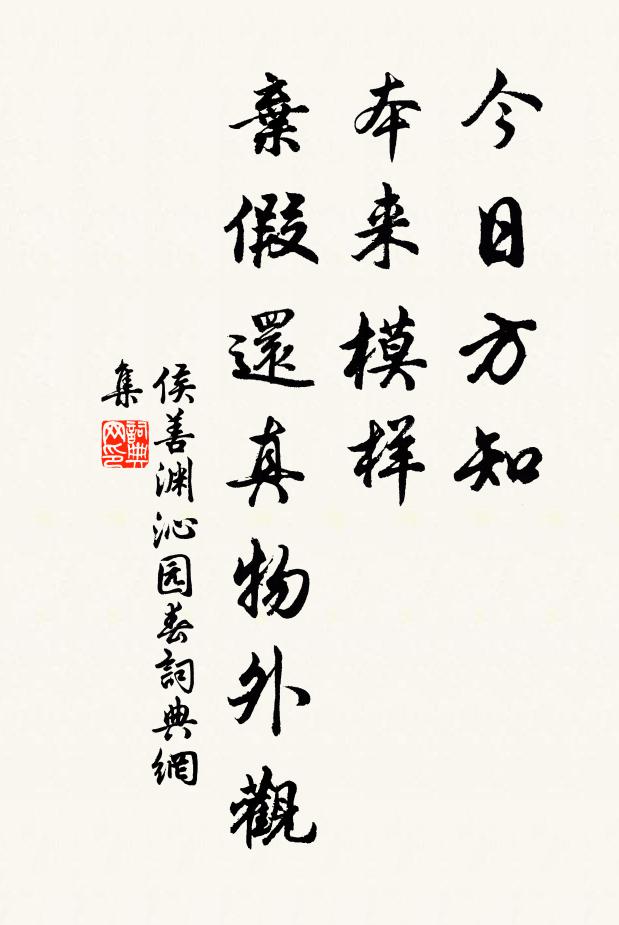 今日方知
本来模样
棄假還真物外觀
侯善渊沁园春詞典網
集
詞典
网印